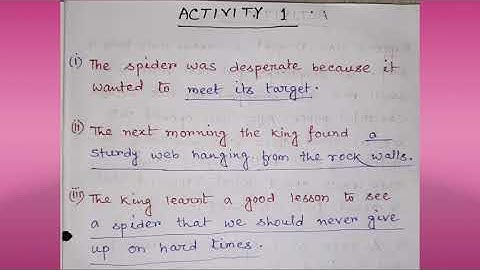 ACTIVITY 1
(i) The spider was desperate because it
wanted to meet its target.
(ii) The next morning the king found a
sturdy web hanging from the rock walls.
(iii) The king learnt a good lesson to see
a spider that we should never give
up on hard times.